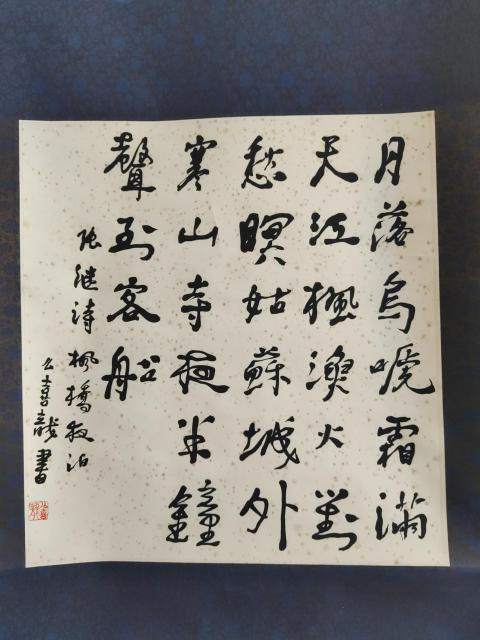 月落烏嗁霜滿
天江楓漁火對
愁瞑姑蘇城外
寒山寺夜半鐘
聲到客船
張継詩楓橋夜泊
么喜龍書